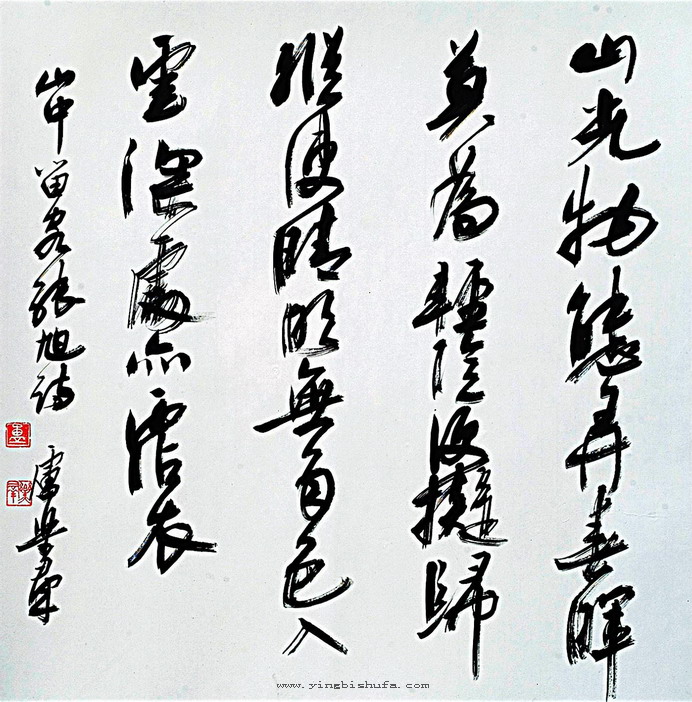 山光物態弄春暉
莫為輕陰便擬歸
縱使晴明無雨色入
雲深處亦霑衣
山中留客張旭詩
www.yingbishufa.com